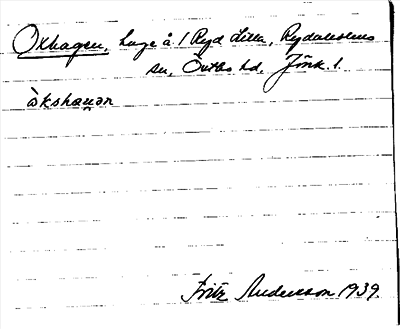 Oxhagen, hage å 1 Ryd Lilla, Rydaholms
sn, Östbo hd, Jönk. l.
òkshaɡən
Fritz Anderson 1939.